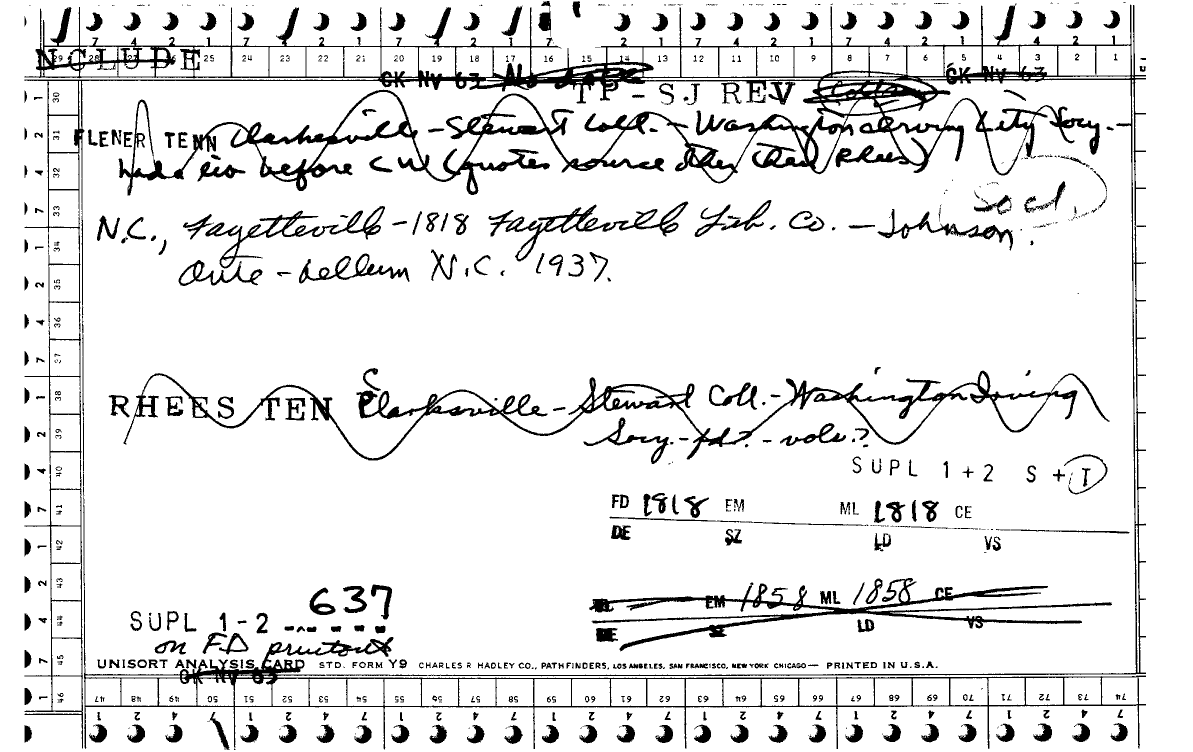 7 4 2 1 7 4 2 1 7 4 2 1 7 2 1 7 4 2 1 7 4 2 1 7 4 2 1
NCLUDE
29 28 27 26 25 24 23 22 21 20 19 18 17 16 15 14 13 12 11 10 9 8 7 6 5 4 3 2 1
CK NV 63 CK NV 63
TP - SJ REV
FLENER TENN Clarkesville - Stewart Coll. - Washington Irving City Socy. -
had a lib before CW (quotes source other than Rhees)
Socl.
N.C., Fayetteville - 1818 Fayetteville Lib. Co. - Johnson.
Ante-bellum N.C. 1937.
RHEES TEN Clarksville - Stewart Coll. - Washington Irving
Socy. - fd? - vols?
SUPL 1+2 S + I
FD 1818 EM ML 1818 CE
DE SZ LD VS
637
EM 1858 ML 1858 CE
SUPL 1-2
DE SZ LD VS
on FD printout
UNISORT ANALYSIS CARD STD. FORM Y9 CHARLES R HADLEY CO., PATHFINDERS, LOS ANGELES, SAN FRANCISCO, NEW YORK CHICAGO — PRINTED IN U.S.A.
CK NV 63
47 48 49 50 51 52 53 54 55 56 57 58 59 60 61 62 63 64 65 66 67 68 69 70 71 72 73 74